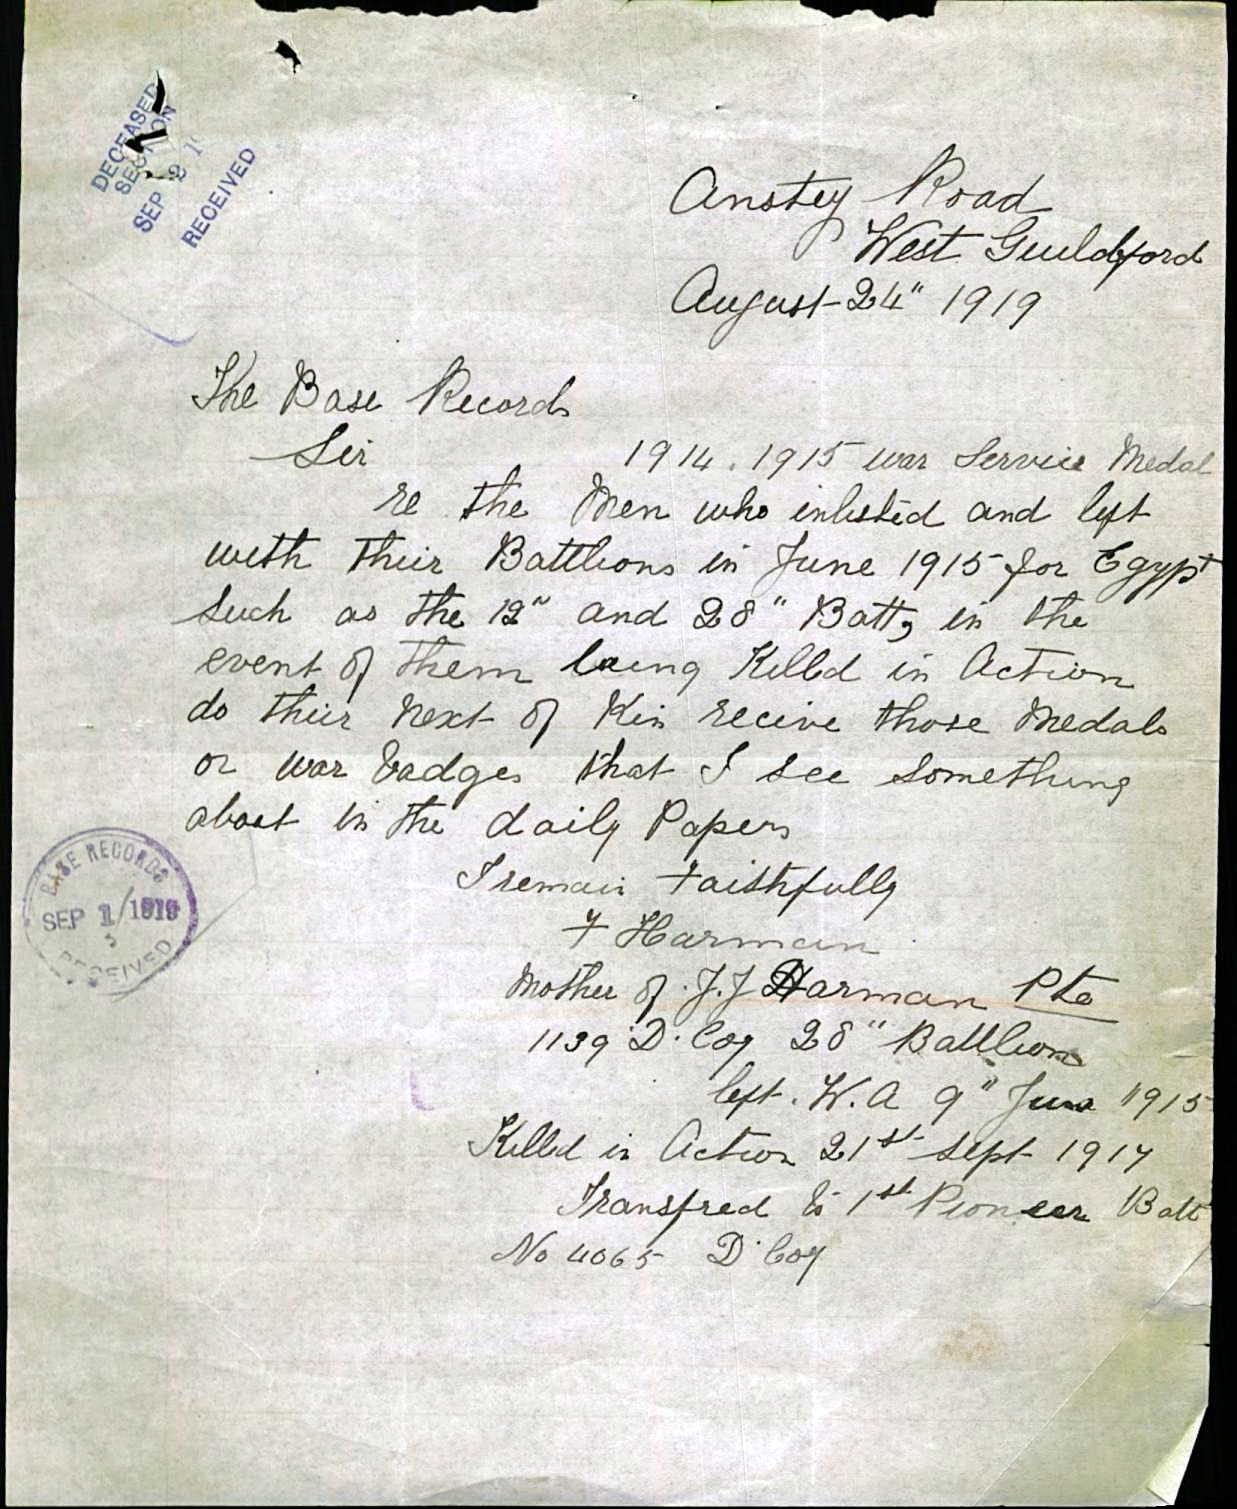 DECEASED
SECTION
SEP 2 19
RECEIVED
Anstey Road
West Guildford
August 24" 1919
The Base Records
Sir 1914.1915 war Service Medal
re the Men who inlisted and left
with their Battlions in June 1915 for Egypt
such as the 12" and 28" Batt, in the
event of them being Killd in Action
do their Next of Kin recive those Medals
or war badges that I see something
about in the daily Papers
I remain Faithfully
F Harman
Mother of J.J Harman Pte
1139 D. Coy 28" Battlion
left. W.A 9" June 1915
Killd in Action 21st Sept 1917
Transfred to 1st Pioneer Batt
No 4065 D. Coy
BASE RECORDS
SEP 1/1919
RECEIVED